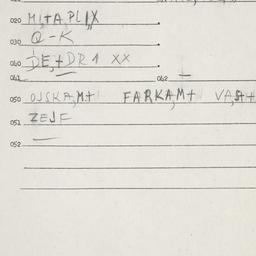 020 MI,+A,PLI,X
030 Q-K
040 DE,+DR1 XX
041 042
050 OJSKA,M+ FARKA,M+ VA,S++
051 ZEJF
052